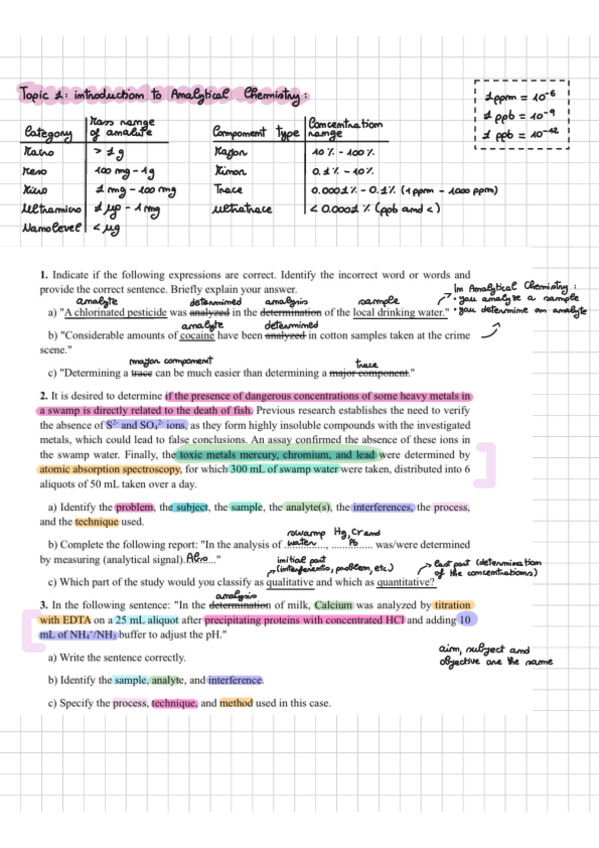 Topic 1: introduction to Analytical Chemistry:
1 ppm = 10⁻⁶
1 ppb = 10⁻⁹
1 ppb = 10⁻¹²
Category Mass range of analyte
Macro > 1 g
Meso 100 mg - 1g
Micro 1 mg - 100 mg
Ultramicro 1 µp - 1 mg
Nanolevel < µg
Component type Concentration range
Major 10% - 100%
Minor 0.1% - 10%
Trace 0.0001% - 0.1% (1 ppm - 1000 ppm)
ultratrace < 0.0001% (ppb and <)
1. Indicate if the following expressions are correct. Identify the incorrect word or words and
provide the correct sentence. Briefly explain your answer.
In Analytical Chemistry:
• you analyze a sample
• you determine an analyte
analyte determined analysis sample
a) "A chlorinated pesticide was analyzed in the determination of the local drinking water."
analyte determined
b) "Considerable amounts of cocaine have been analyzed in cotton samples taken at the crime
scene."
major component trace
c) "Determining a trace can be much easier than determining a major component."
2. It is desired to determine if the presence of dangerous concentrations of some heavy metals in
a swamp is directly related to the death of fish. Previous research establishes the need to verify
the absence of S²⁻ and SO₄²⁻ ions, as they form highly insoluble compounds with the investigated
metals, which could lead to false conclusions. An assay confirmed the absence of these ions in
the swamp water. Finally, the toxic metals mercury, chromium, and lead were determined by
atomic absorption spectroscopy, for which 300 mL of swamp water were taken, distributed into 6
aliquots of 50 mL taken over a day.
a) Identify the problem, the subject, the sample, the analyte(s), the interferences, the process,
and the technique used.
swamp water Hg, Cr and Pb
b) Complete the following report: "In the analysis of ............, ............ was/were determined
by measuring (analytical signal) Abs..."
initial part (interferents, problem, etc.)
last part (determination of the concentrations)
c) Which part of the study would you classify as qualitative and which as quantitative?
analysis
3. In the following sentence: "In the determination of milk, Calcium was analyzed by titration
with EDTA on a 25 mL aliquot after precipitating proteins with concentrated HCl and adding 10
mL of NH₄⁺/NH₃ buffer to adjust the pH."
aim, subject and
objective are the same
a) Write the sentence correctly.
b) Identify the sample, analyte, and interference.
c) Specify the process, technique, and method used in this case.